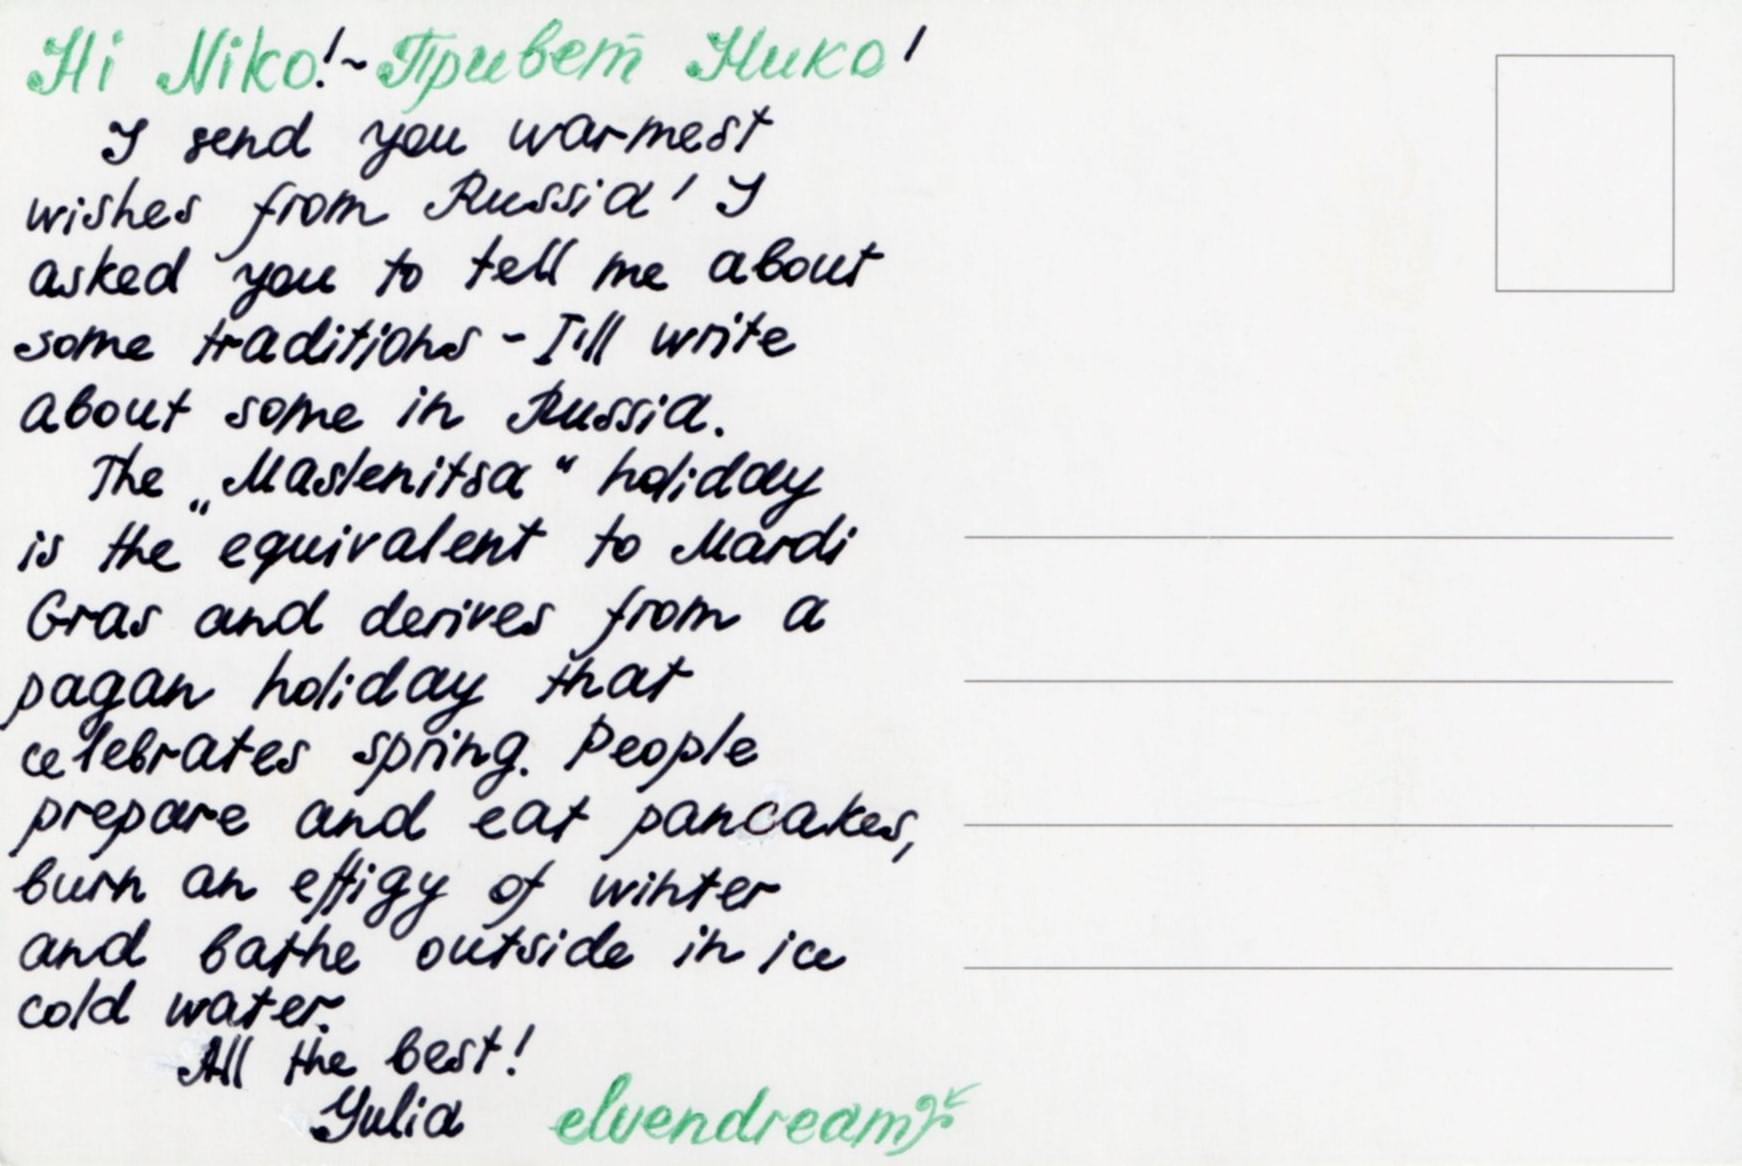 Hi Niko!~Привет Нико!
I send you warmest
wishes from Russia! I
asked you to tell me about
some traditions - I'll write
about some in Russia.
The „Maslenitsa“ holiday
is the equivalent to Mardi
Gras and derives from a
pagan holiday that
celebrates spring. People
prepare and eat pancakes,
burn an effigy of winter
and bathe outside in ice
cold water.
All the best!
Yulia
elvendream